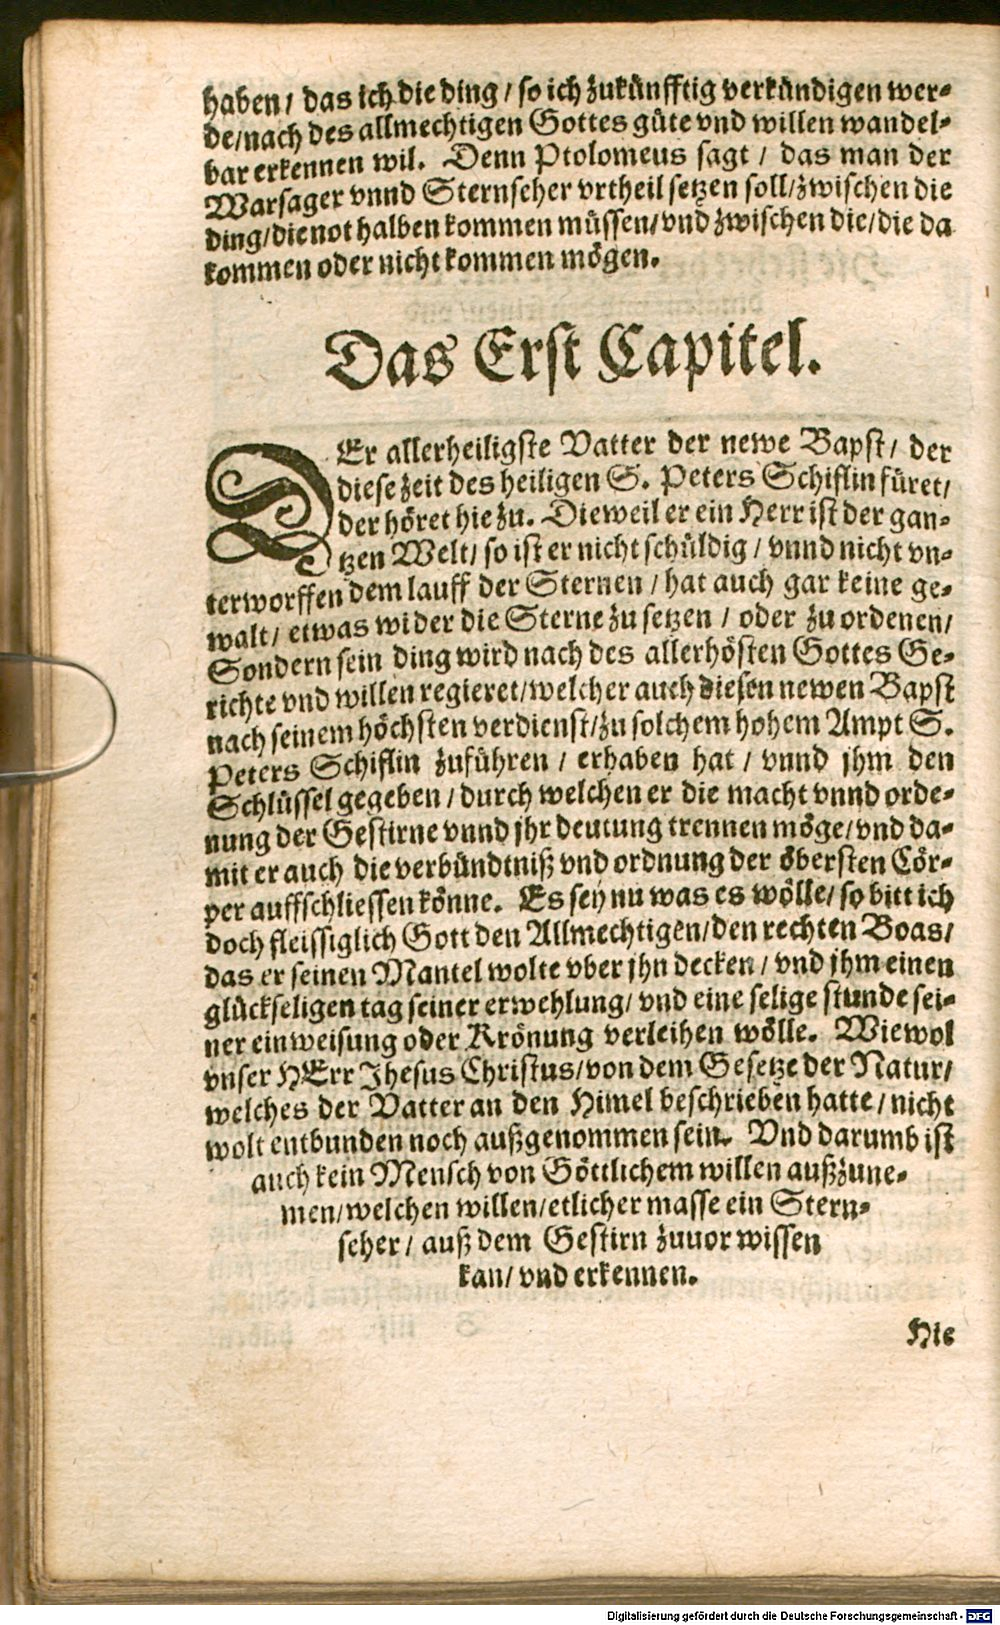 haben / das ich die ding / so ich zukünfftig verkündigen wer-
de/nach des allmechtigen Gottes güte vnd willen wandel-
bar erkennen wil. Denn Ptolomeus sagt / das man der
Warsager vnnd Sternseher vrtheil setzen soll/zwischen die
ding/die not halben kommen müssen/vnd zwischen die/die da
kommen oder nicht kommen mögen.
Das Erst Capitel.
DEr allerheiligste Vatter der newe Bapst / der
diese zeit des heiligen S. Peters Schiflin füret/
der höret hie zu. Dieweil er ein Herr ist der gan-
tzen Welt/ so ist er nicht schüldig / vnnd nicht vn-
terworffen dem lauff der Sternen / hat auch gar keine ge-
walt/ etwas wider die Sterne zu setzen / oder zu ordenen/
Sondern sein ding wird nach des allerhösten Gottes Ge-
richte vnd willen regieret/welcher auch diesen newen Bapst
nach seinem höchsten verdienst/zu solchem hohem Ampt S.
Peters Schiflin zuführen / erhaben hat / vnnd jhm den
Schlüssel gegeben / durch welchen er die macht vnnd orde-
nung der Gestirne vnnd jhr deutung trennen möge/vnd da-
mit er auch die verbündtniß vnd ordnung der öbersten Cör-
per auffschliessen könne. Es sey nu was es wölle/ so bitt ich
doch fleissiglich Gott den Allmechtigen/den rechten Boas/
das er seinen Mantel wolte vber jhn decken / vnd jhm einen
glückseligen tag seiner erwehlung/ vnd eine selige stunde sei-
ner einweisung oder Krönung verleihen wölle. Wiewol
vnser HErr Jhesus Christus/von dem Gesetze der Natur/
welches der Vatter an den Himel beschrieben hatte / nicht
wolt entbunden noch außgenommen sein. Vnd darumb ist
auch kein Mensch von Göttlichem willen außzune-
men/welchen willen/etlicher masse ein Stern-
seher / auß dem Gestirn zuuor wissen
kan/ vnd erkennen.
Hie
Digitalisierung gefördert durch die Deutsche Forschungsgemeinschaft - DFG